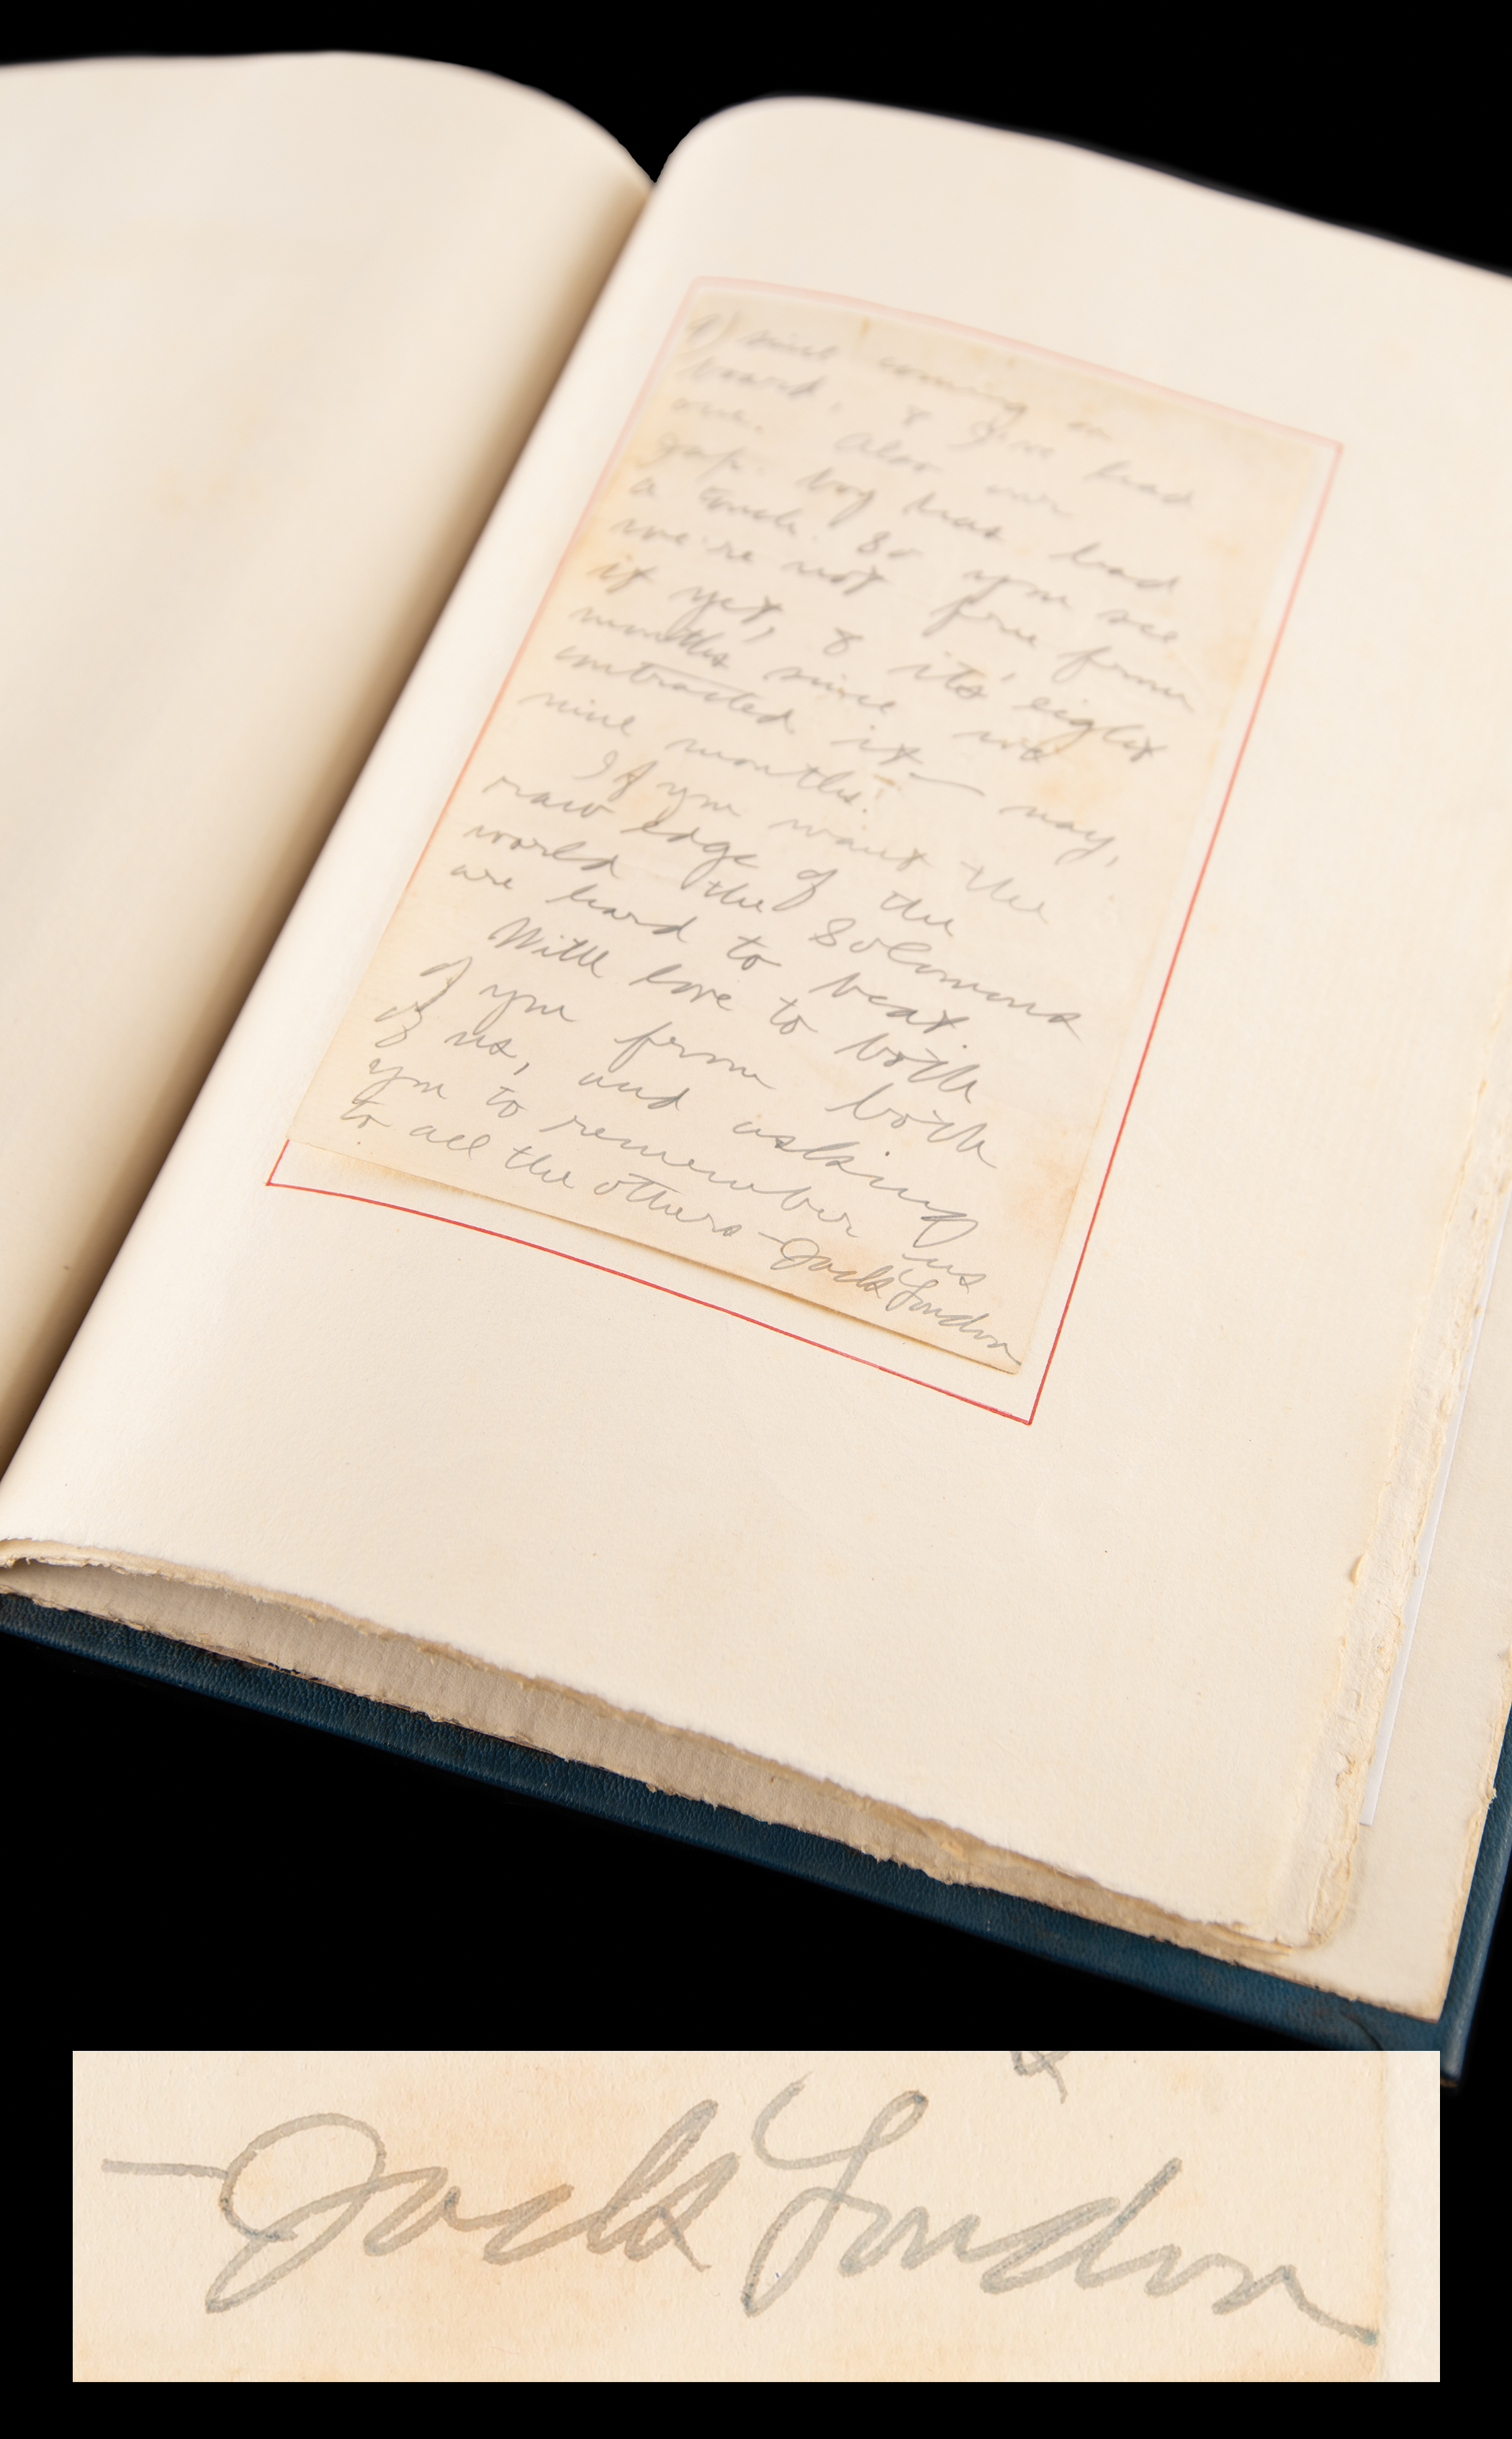 9) since coming on
board, & I've had
one. Also our
Jap. boy has had
a touch. So you see
we're not free from
it yet, & its' eight
months since we
contracted it — nay,
nine months.
If you want the
raw edge of the
world, the Solomons
are hard to beat.
With love to both
of you from both
of us, and asking
you to remember us
to all the others —Jack London
—Jack London